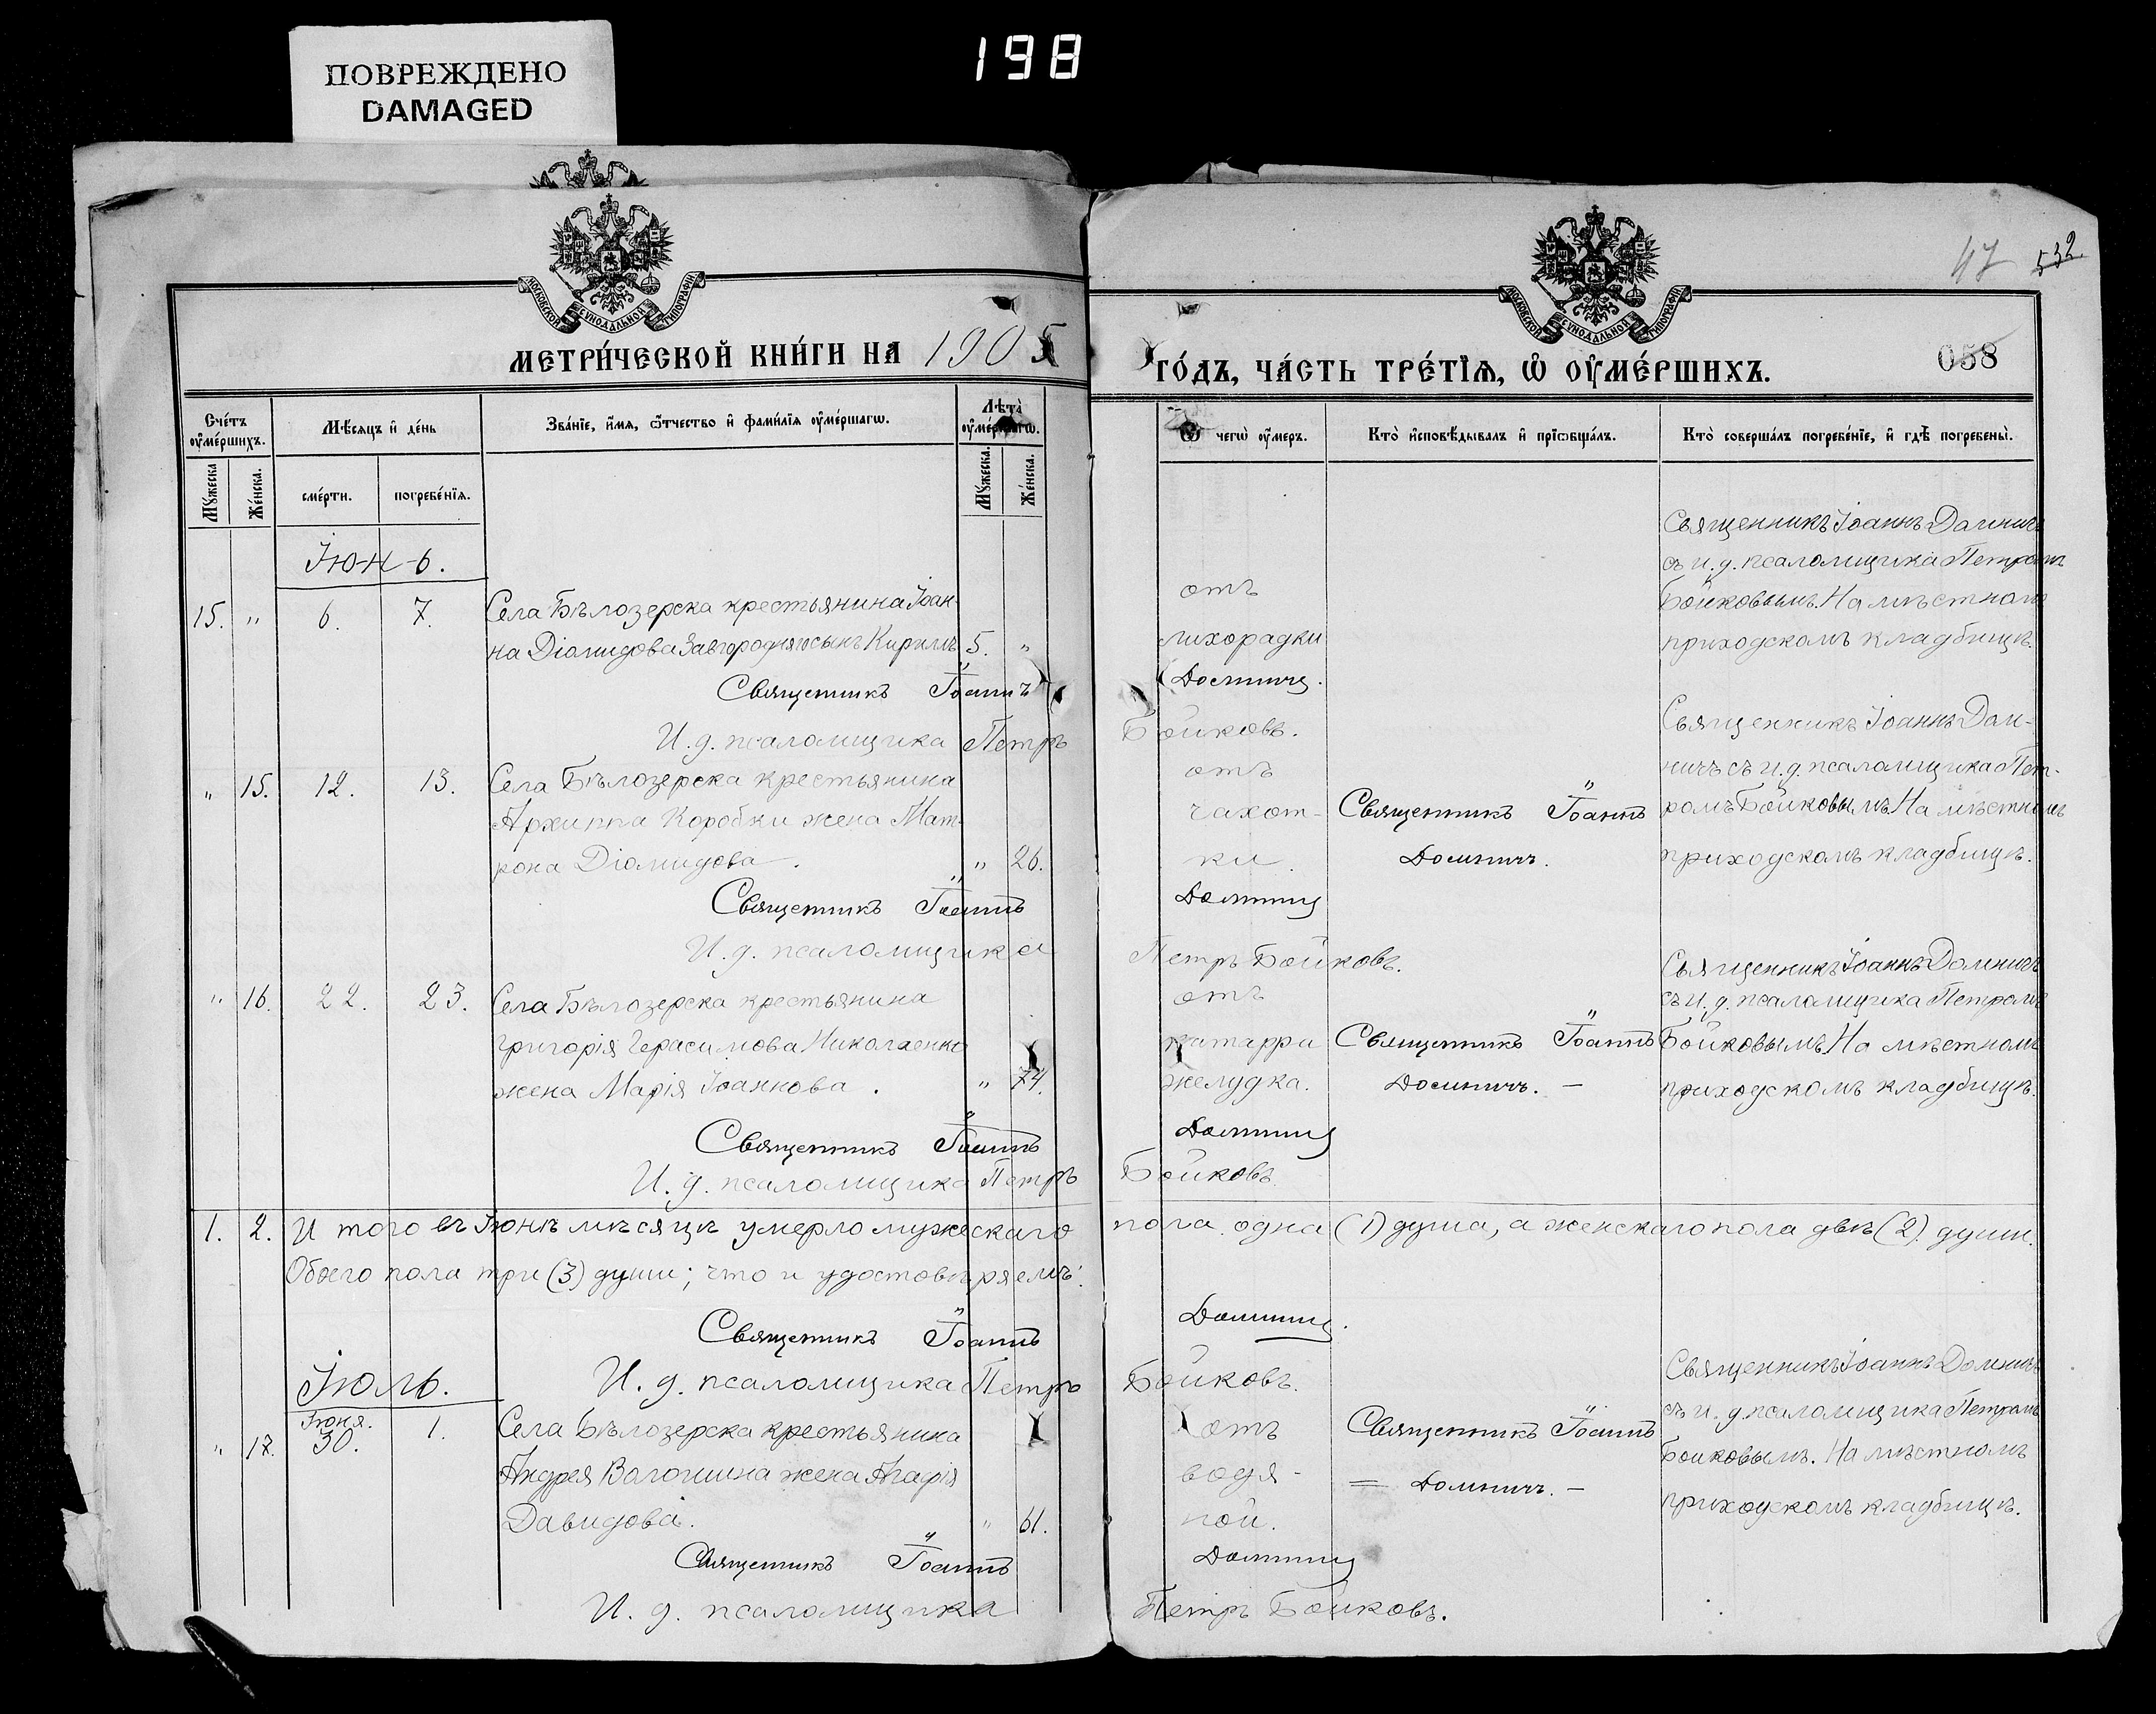 ПОВРЕЖДЕНО
DAMAGED
198
47 532.
МОСКОВСКОЙ СѴНОДАЛЬНОЙ ТИПОГРАФІИ
МОСКОВСКОЙ СѴНОДАЛЬНОЙ ТИПОГРАФІИ
МЕТРИ́ЧЕСКОЙ КНИ́ГИ НА 1905
ГО́ДЪ, ЧА́СТЬ ТРЕ́ТІѦ, Ѡ ОУМЕ́РШИХЪ.
058
Сче́тъ оуме́ршихъ.
Мѣсяцъ и де́нь
Зва́ніе, и́мя, ѻтчество и фами́лія оуме́ршагѡ.
Лѣта̀ оуме́ршагѡ.
Ѿ чегѡ̀ оу́меръ.
Кто̀ исповѣдывалъ и пріѡбща́лъ.
Кто̀ соверша́лъ погребе́ніе, и гдѣ погребены̀.
Му́жеска
Же́нска.
сме́рти.
погребе́нія.
Му́жеска.
Же́нска.
Іюнь.
15. " 6. 7. Села Бѣлозерска крестьянина Іоан-
на Діомидова Завгородняго сынъ Кириллъ 5. "
отъ
лихорадки
Священникъ Іоаннъ Домничъ
съ и. д. псаломщика Петромъ
Бойковымъ. На мѣстномъ
приходскомъ кладбищѣ.
Священникъ Іоаннъ Домничъ.
И. д. псаломщика Петръ Бойковъ.
" 15. 12. 13. Села Бѣлозерска крестьянина
Архиппа Коробки жена Мат-
рона Діомидова. " 26.
отъ
чахот-
ки.
Священникъ Іоаннъ
Домничъ.
Священникъ Іоаннъ Дом-
ничъ съ и. д. псаломщика Пет-
ромъ Бойковымъ. На мѣстномъ
приходскомъ кладбищѣ.
Священникъ Іоаннъ Домничъ
И. д. псаломщика Петръ Бойковъ.
" 16. 22. 23. Села Бѣлозерска крестьянина
Григорія Герасимова Николаенко
жена Марія Іоаннова. " 74.
отъ
катарра
желудка.
Священникъ Іоаннъ
Домничъ. —
Священникъ Іоаннъ Домничъ
съ и. д. псаломщика Петромъ
Бойковымъ. На мѣстномъ
приходскомъ кладбищѣ.
Священникъ Іоаннъ Домничъ
И. д. псаломщика Петръ Бойковъ.
1. 2. И того въ Іюнѣ мѣсяцѣ умерло мужескаго пола одна (1) душа, а женскаго пола двѣ (2) души.
Обоего пола три (3) души; что и удостовѣряемъ:
Священникъ Іоаннъ Домничъ.
И. д. псаломщика Петръ Бойковъ.
Іюль.
Іюня.
" 17. 30. 1. Села Бѣлозерска крестьянина
Андрея Волошина жена Агафія
Давидова. " 61.
отъ
водя-
ной.
Священникъ Іоаннъ
= Домничъ. —
Священникъ Іоаннъ Домничъ
съ и. д. псаломщика Петромъ
Бойковымъ. На мѣстномъ
приходскомъ кладбищѣ.
Священникъ Іоаннъ Домничъ
И. д. псаломщика Петръ Бойковъ.